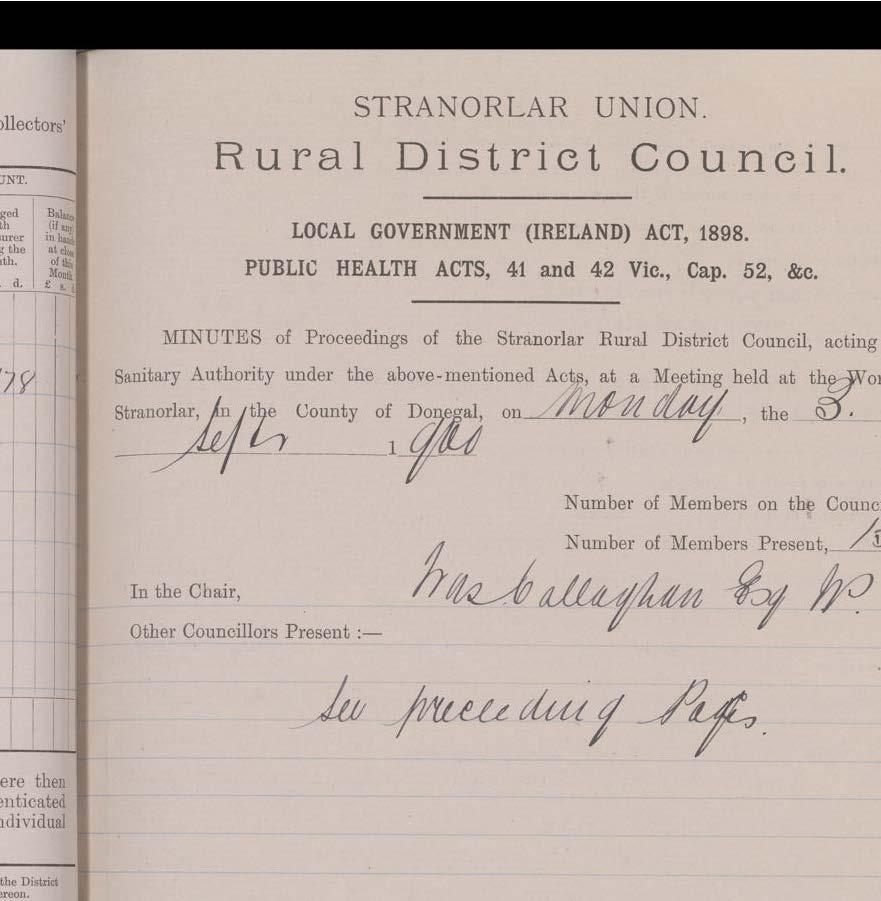 ollectors'
UNT.
ged
th
urer
g the
th.
. d.
Balance
(if any)
in hand
at close
of this
Month
£ s. d
78
ere then
enticated
ndividual
the District
ereon.
STRANORLAR UNION.
Rural District Council.
LOCAL GOVERNMENT (IRELAND) ACT, 1898.
PUBLIC HEALTH ACTS, 41 and 42 Vic., Cap. 52, &c.
MINUTES of Proceedings of the Stranorlar Rural District Council, acting
Sanitary Authority under the above-mentioned Acts, at a Meeting held at the Wor
Stranorlar, in the County of Donegal, on Monday, the 3.
Septr 1900
Number of Members on the Counc
Number of Members Present,
In the Chair, Callaghan Esq
Other Councillors Present :—
See preceeding Pages.